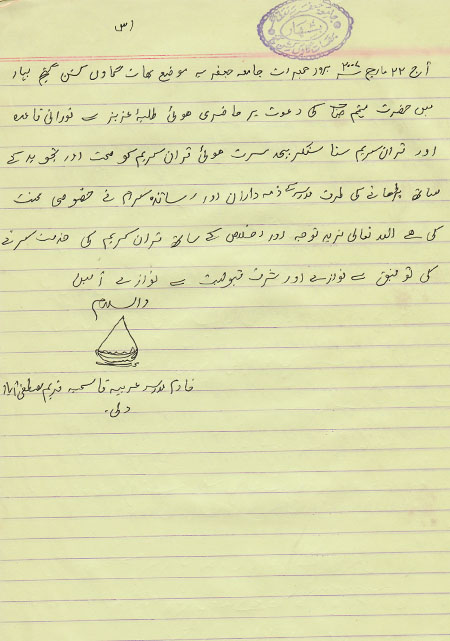 آج ۲۲ مارچ ۲۰۰۷ء بروز جمعرات جامعہ صفہ موضع بھات گنج بہار
میں حضرت مہتمم صاحب کی دعوت پر حاضری ہوئی طلبۂ عزیز سے نورانی قاعدہ
اور قرآن کریم سنا سنکر بیحد مسرت ہوئی قرآن کریم کو صحت اور تجوید کے
ساتھ پڑھانے کی طرف مدرسہ کے ذمہ داران اور اساتذہ کرام نے خصوصی محنت
کی ہے اللہ تعالیٰ مزید توجہ اور اخلاص کے ساتھ قرآن کریم کی خدمت کرنے
کی توفیق سے نوازے اور شرف قبولیت سے نوازے آمین
والسلام
خادم مدرسہ عربیہ قاسمیہ قدیم مصطفیٰ آباد
دہلی۔